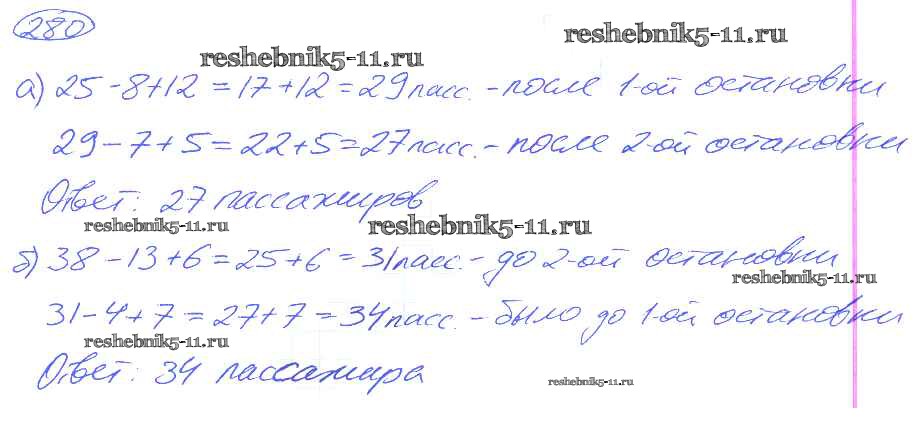 280
reshebnik5-11.ru
reshebnik5-11.ru
а) 25 - 8 + 12 = 17 + 12 = 29 пасс. - после 1-ой остановки
29 - 7 + 5 = 22 + 5 = 27 пасс. - после 2-ой остановки
Ответ: 27 пассажиров
reshebnik5-11.ru
reshebnik5-11.ru
б) 38 - 13 + 6 = 25 + 6 = 31 пасс. - до 2-ой остановки
reshebnik5-11.ru
31 - 4 + 7 = 27 + 7 = 34 пасс. - было до 1-ой остановки
reshebnik5-11.ru
Ответ: 34 пассажира
reshebnik5-11.ru